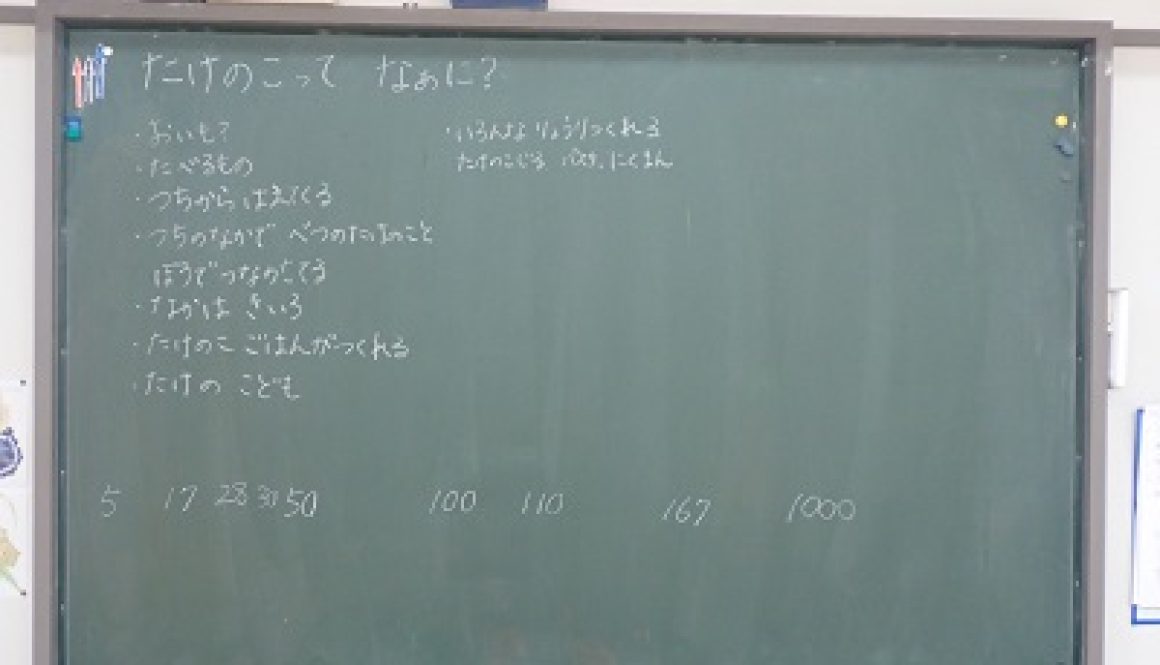 たけのこって なぁに?
・おいも?
・たべるもの
・つちから はえてくる
・つちのなかで べつのたけのこと
ぼうでつながってる
・なかは きいろ
・たけのこ ごはんがつくれる
・たけの こども
・いろんなりょうりつくれる
たけのこじる にくまん
5 17 28 30 50 100 110 167 1000